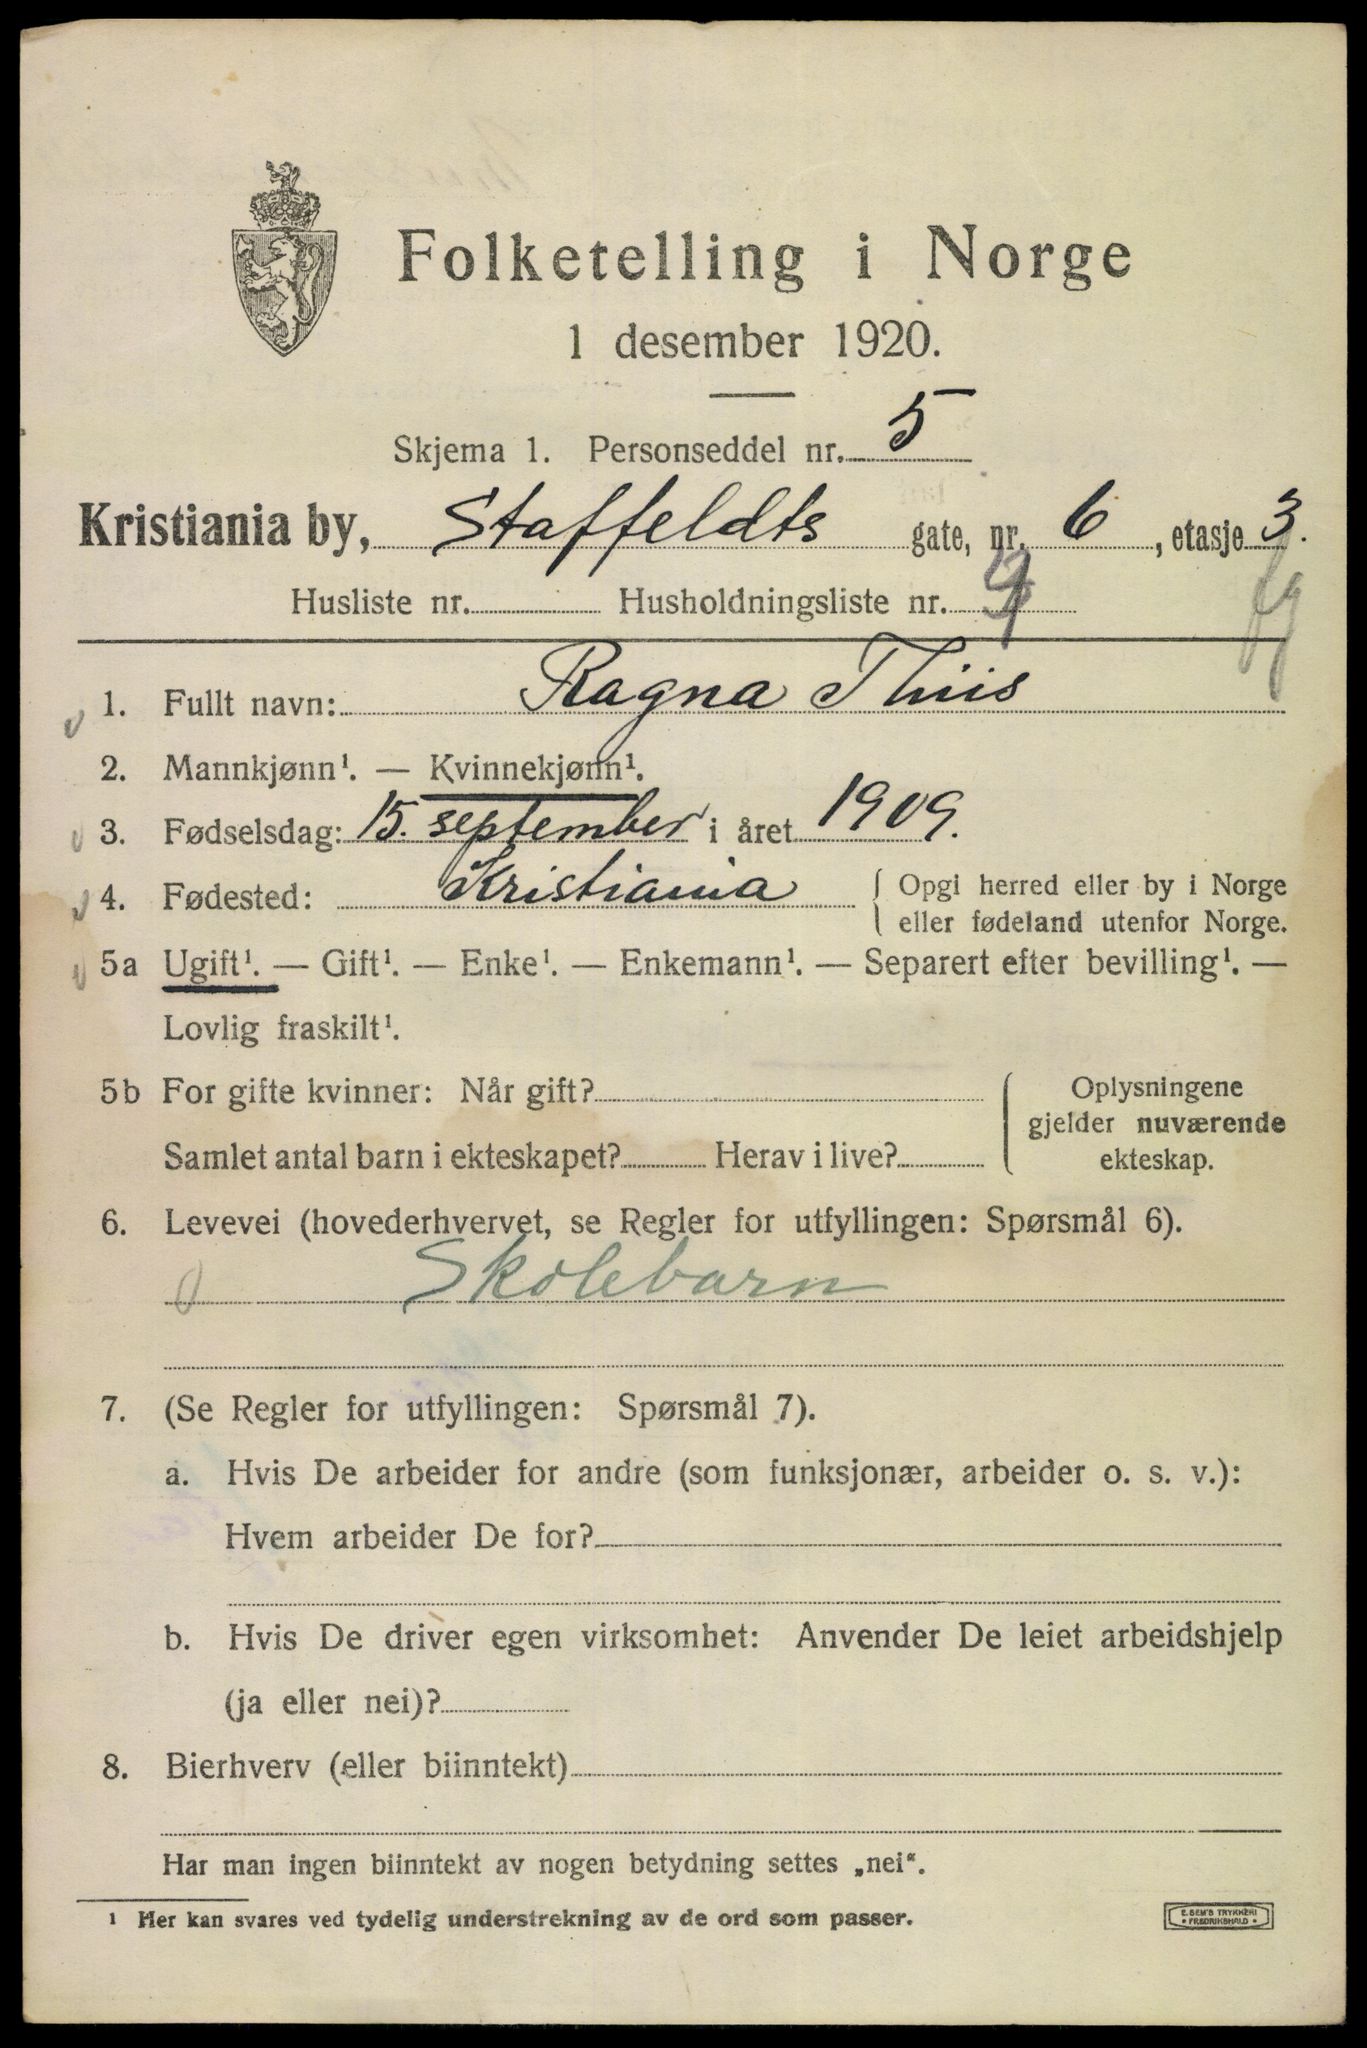 Folketelling i Norge
1 desember 1920.
Skjema 1. Personseddel nr. 5
Kristiania by, Staffeldts gate, nr. 6, etasje 3.
Husliste nr. Husholdningsliste nr.
1. Fullt navn: Ragna Thiis
2. Mannkjønn¹. — Kvinnekjønn¹.
3. Fødselsdag: 15. september i året 1909.
4. Fødested: Kristiania { Opgi herred eller by i Norge
eller fødeland utenfor Norge.
5a Ugift¹. — Gift¹. — Enke¹. — Enkemann¹. — Separert efter bevilling¹. —
Lovlig fraskilt¹.
5b For gifte kvinner: Når gift? { Oplysningene
gjelder nuværende
Samlet antal barn i ekteskapet? Herav i live? ekteskap.
6. Levevei (hovederhvervet, se Regler for utfyllingen: Spørsmål 6).
Skolebarn
7. (Se Regler for utfyllingen: Spørsmål 7).
a. Hvis De arbeider for andre (som funksjonær, arbeider o. s. v.):
Hvem arbeider De for?
b. Hvis De driver egen virksomhet: Anvender De leiet arbeidshjelp
(ja eller nei)?
8. Bierhverv (eller biinntekt)
Har man ingen biinntekt av nogen betydning settes „nei“.
¹ Her kan svares ved tydelig understrekning av de ord som passer.
E. SEM'S TRYKKERI
• FREDRIKSHALD •